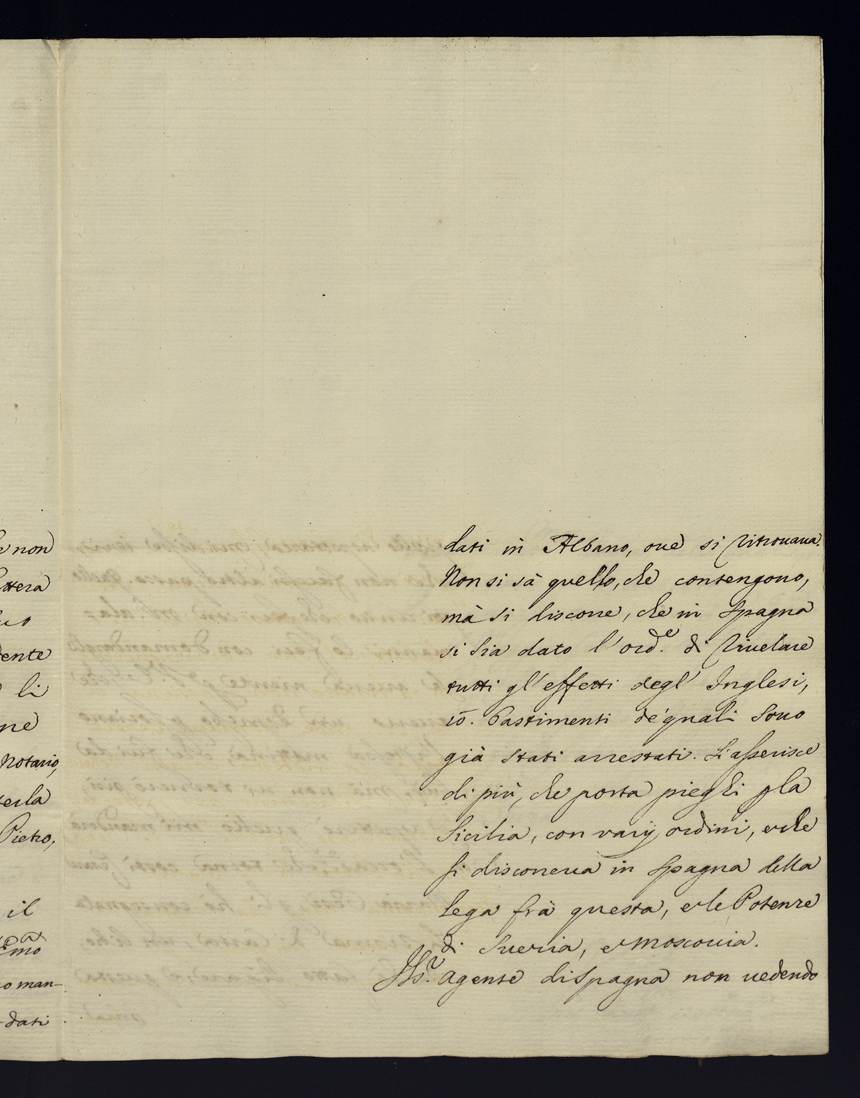 e non
ttera
ente
li
ne
Notario,
terla
Pietro,
il
mo
o man-
dati
dati in Albano, oue si ritrouaua.
Non si sà quello, che contengono,
mà si discorre, che in Spagna
si sia dato l'ord.e di riuelare
tutti gl'effetti degl'Inglesi,
10. bastimenti de' quali sono
già stati arrestati. S'asserisce
di più, che porta pieghi p la
Sicilia, con varij ordini, e che
si discorreua in Spagna della
lega frà questa, e le Potenze
di Suezia, e Moscouia.
Agente di Spagna non uedendo